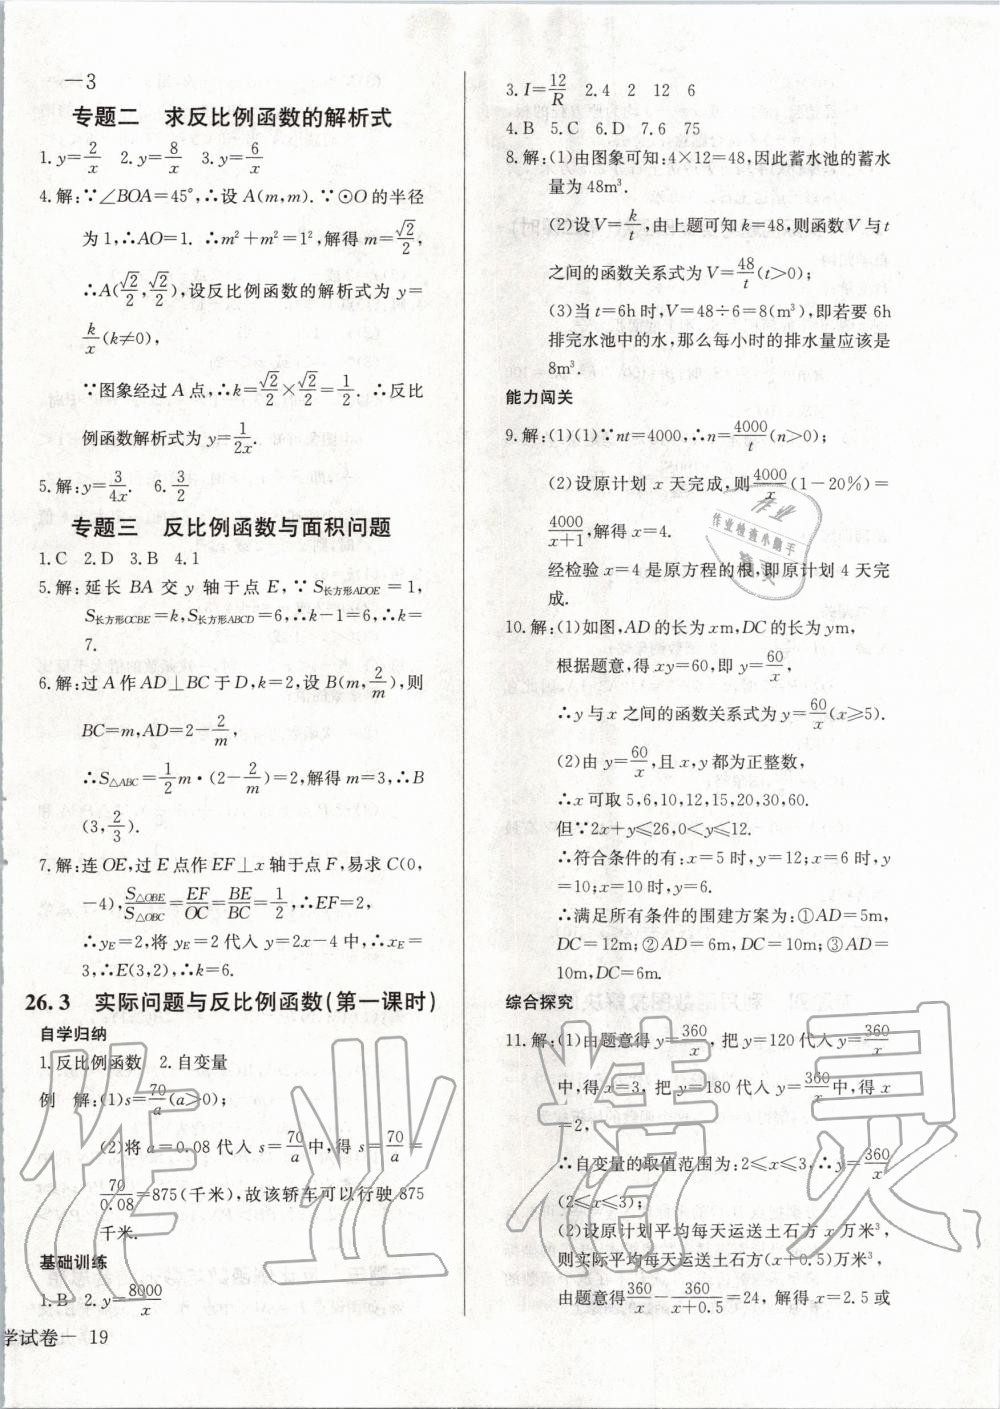 －3
专题二 求反比例函数的解析式
1. y=2/x 2. y=8/x 3. y=6/x
4. 解:∵∠BOA=45°,∴设 A(m,m). ∵⊙O 的半径
为 1,∴AO=1. ∴m²+m²=1²,解得 m=√2/2,
∴A(√2/2,√2/2),设反比例函数的解析式为 y=
k/x(k≠0),
∵图象经过 A 点,∴k=√2/2×√2/2=1/2. ∴反比
例函数解析式为 y=1/2x.
5. 解:y=3/4x. 6. 3/2
专题三 反比例函数与面积问题
1. C 2. D 3. B 4. 1
5. 解:延长 BA 交 y 轴于点 E,∵S长方形ADOE=1,
S长方形OCBE=k,S长方形ABCD=6,∴k-1=6,∴k=
7.
6. 解:过 A 作 AD⊥BC 于 D,k=2,设 B(m,2/m),则
BC=m,AD=2-2/m,
∴S△ABC=1/2m·(2-2/m)=2,解得 m=3,∴B
(3,2/3).
7. 解:连 OE,过 E 点作 EF⊥x 轴于点 F,易求 C(0,
-4),S△OBE/S△OBC=EF/OC=BE/BC=1/2,∴EF=2,
∴yE=2,将 yE=2 代入 y=2x-4 中,∴xE=
3,∴E(3,2),∴k=6.
26.3 实际问题与反比例函数(第一课时)
自学归纳
1. 反比例函数 2. 自变量
例 解:(1)s=70/a(a>0);
(2)将 a=0.08 代入 s=70/a中,得 s=70/a=
70/0.08=875(千米),故该轿车可以行驶 875
千米.
基础训练
1. B 2. y=8000/x
学试卷— 19
3. I=12/R 2. 4 2 12 6
4. B 5. C 6. D 7. 6 75
8. 解:(1)由图象可知:4×12=48,因此蓄水池的蓄水
量为 48m³.
(2)设 V=k/t,由上题可知 k=48,则函数 V 与 t
之间的函数关系式为 V=48/t(t>0);
(3)当 t=6h 时,V=48÷6=8(m³),即若要 6h
排完水池中的水,那么每小时的排水量应该是
8m³.
能力闯关
9. 解:(1)(1)∵nt=4000,∴n=4000/t(n>0);
(2)设原计划 x 天完成,则4000/x(1-20%)=
4000/x+1,解得 x=4.
经检验 x=4 是原方程的根,即原计划 4 天完
成.
10. 解:(1)如图,AD 的长为 xm,DC 的长为 ym,
根据题意,得 xy=60,即 y=60/x,
∴y 与 x 之间的函数关系式为 y=60/x(x≥5).
(2)由 y=60/x,且 x,y 都为正整数,
∴x 可取 5,6,10,12,15,20,30,60.
但∵2x+y≤26,0<y≤12.
∴符合条件的有:x=5 时,y=12;x=6 时,y
=10;x=10 时,y=6.
∴满足所有条件的围建方案为:①AD=5m,
DC=12m;②AD=6m,DC=10m;③AD=
10m,DC=6m.
综合探究
11. 解:(1)由题意得 y=360/x,把 y=120 代入 y=360/x
中,得 x=3,把 y=180 代入 y=360/x中,得 x
=2,
∴自变量的取值范围为:2≤x≤3,∴y=360/x
(2≤x≤3);
(2)设原计划平均每天运送土石方 x 万米³,
则实际平均每天运送土石方(x+0.5)万米³.
由题意得360/x-360/x+0.5=24,解得 x=2.5 或
作业精灵
作业
作业检查小助手
精灵